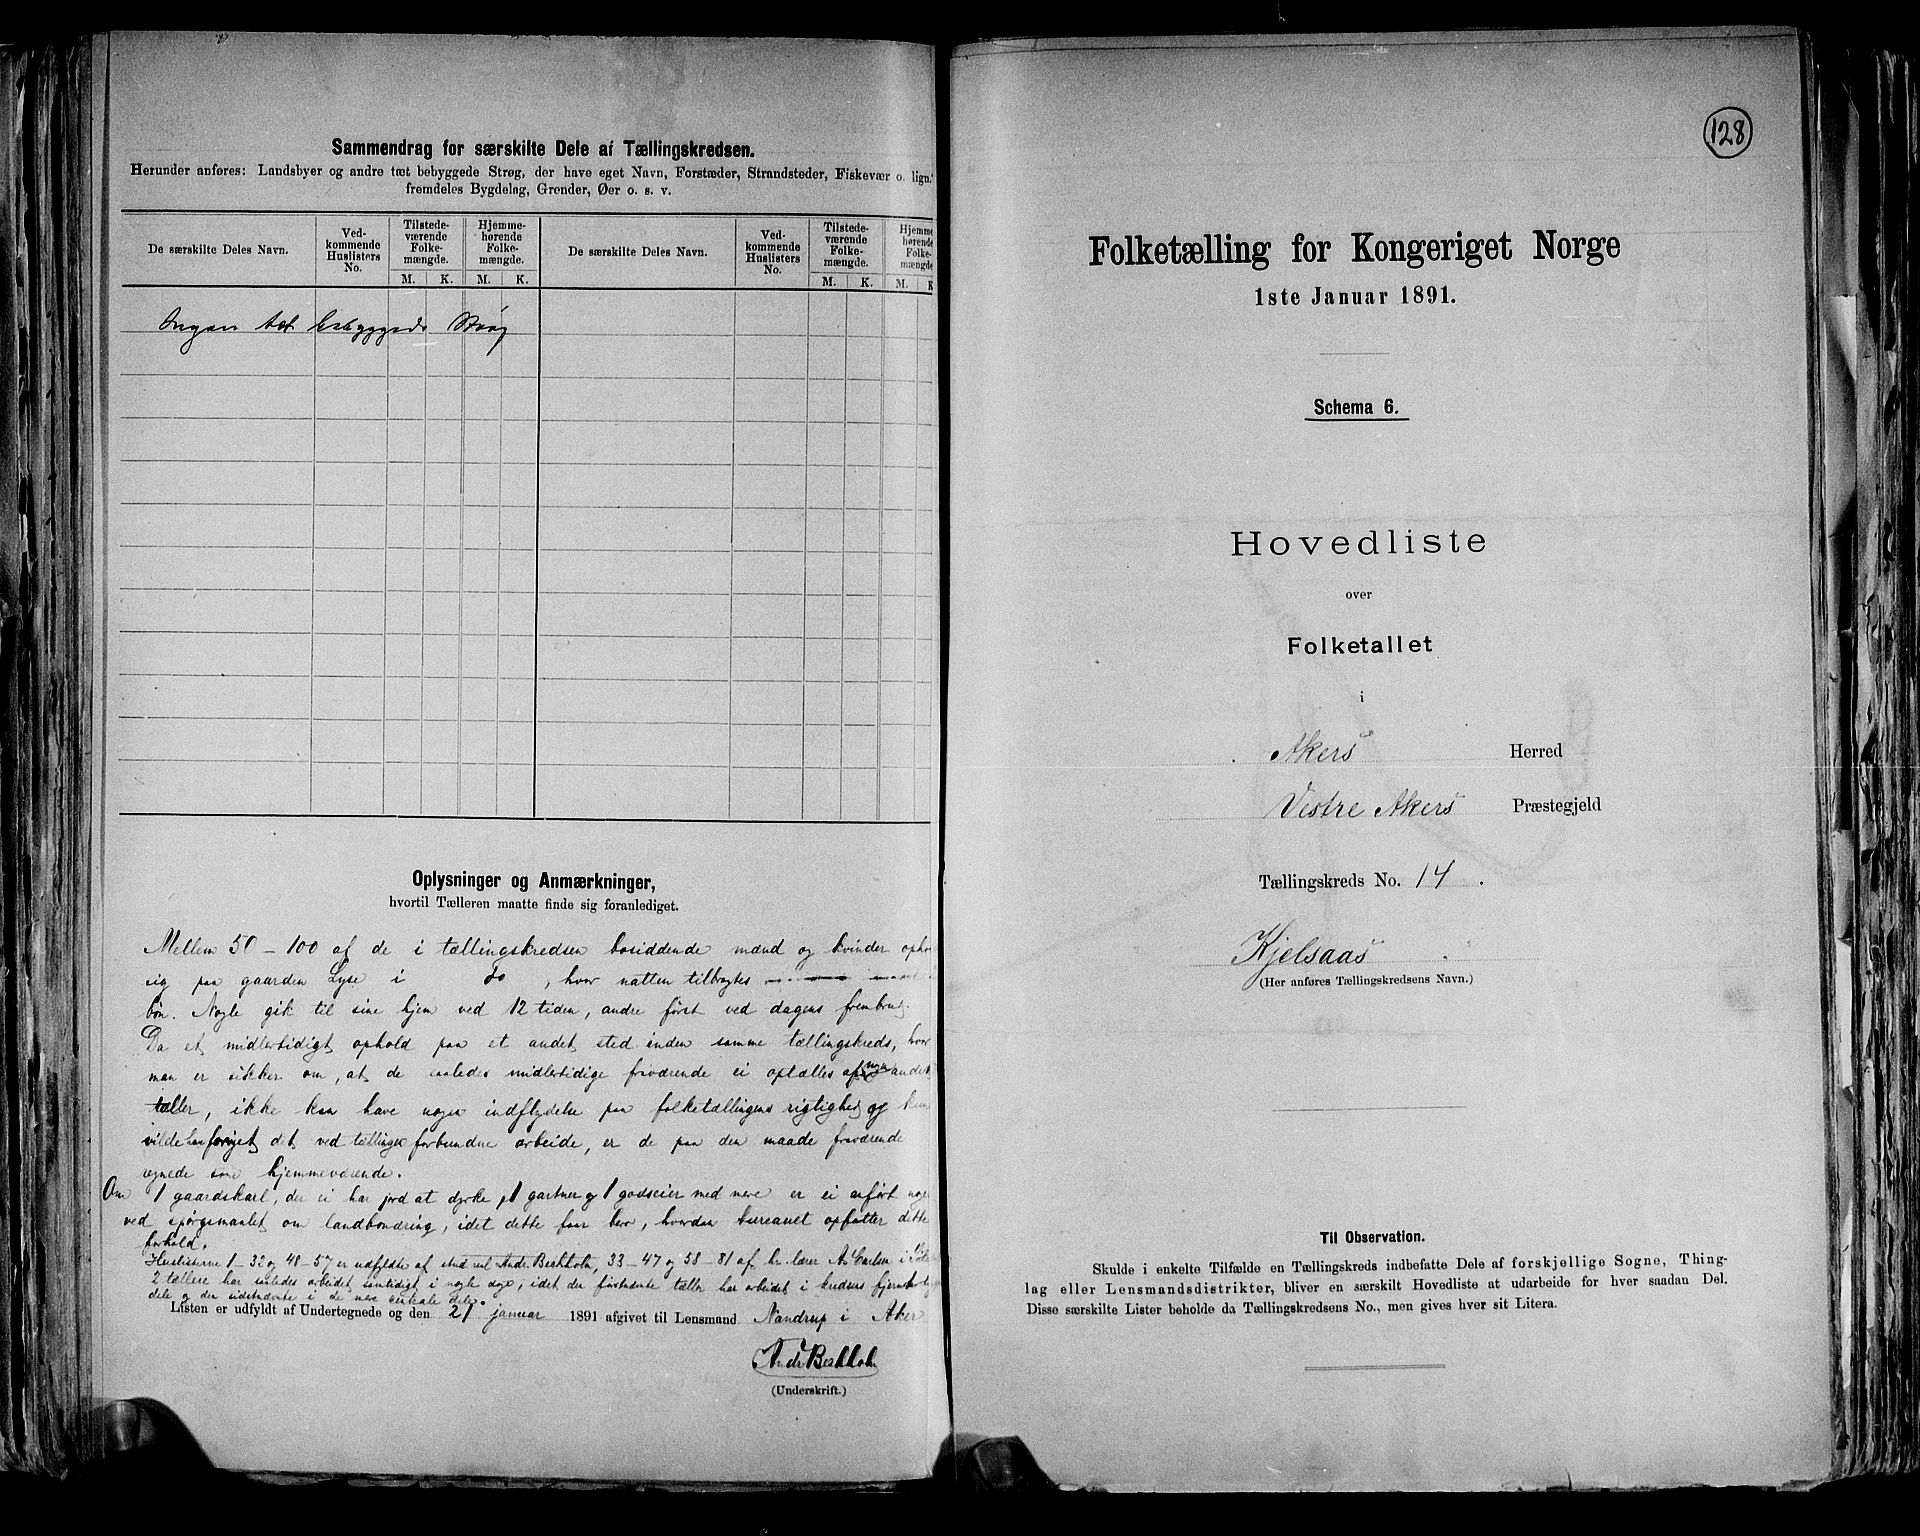 Sammendrag for særskilte Dele af Tællingskredsen.
Herunder anføres: Landsbyer og andre tæt bebyggede Strøg, der have eget Navn, Forstæder, Strandsteder, Fiskevær o. lign.
fremdeles Bygdelag, Grender, Øer o. s. v.
De særskilte Deles Navn.
Ved-
kommende
Huslisters
No.
Tilstede-
værende
Folke-
mængde.
Hjemme-
hørende
Folke-
mængde.
M. K. M. K.
De særskilte Deles Navn.
Ved-
kommende
Huslisters
No.
Tilstede-
værende
Folke-
mængde.
Hjemme-
hørende
Folke-
mængde
M. K. M. K
Ingen tæt bebyggede Strøg
Oplysninger og Anmærkninger,
hvortil Tælleren maatte finde sig foranlediget.
Mellem 50 – 100 af de i tællingskredsen bosiddende mænd og kvinder opho
sig paa gaarden Lyse i do, hvor natten tilbragtes
bøn. Nogle gik til sine hjem ved 12 tiden, andre først ved dagens frembrud.
Da et midlertidigt ophold paa et andet sted inden samme tællingskreds, hvor
man er sikker om, at de saaledes midlertidige fraværende ei optælles af nogen anden
tæller, ikke kan have nogen indflydelse paa folketællingens rigtighed og kun
vilde have forøget det ved tællingen forbundne arbeide, er de paa den maade fraværende
regnede som hjemmeværende.
Om 1 gaardskarl, der ei har jord at dyrke, 1 gartner og 1 godseier med mere er ei anført noget
ved spørgsmaalet om landbondring, idet dette faar bero, hvordan bureauet opfatter dette
forhold.
Huslisterne 1–32 og 48–57 er udfyldte af stud real Andr. Berkholn, 33–47 og 58–81 af hr. lærer A.
2 tællere har saaledes arbeidet samtidigt i nogle dage, idet den førstnævnte tæller har arbeidet i kredsens fjernt
dele og den sidstnævnte i de mere centrale dele.
Listen er udfyldt af Undertegnede og den 21 januar 1891 afgivet til Lensmand Nandrup i Aker
Andr Berkholn
(Underskrift.)
128
Folketælling for Kongeriget Norge
1ste Januar 1891.
Schema 6.
Hovedliste
over
Folketallet
i
Akers Herred
Vestre Akers Præstegjeld
Tællingskreds No. 14.
Kjelsaas
(Her anføres Tællingskredsens Navn.)
Til Observation.
Skulde i enkelte Tilfælde en Tællingskreds indbefatte Dele af forskjellige Sogne, Thing-
lag eller Lensmandsdistrikter, bliver en særskilt Hovedliste at udarbeide for hver saadan Del.
Disse særskilte Lister beholde da Tællingskredsens No., men gives hver sit Litera.